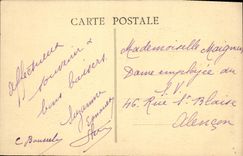 CARTE POSTALE
Affectueux
souvenir &
bons baisers.
Suzanne
Mademoiselle
Dame employée du
46, Rue St Blaise
Alençon